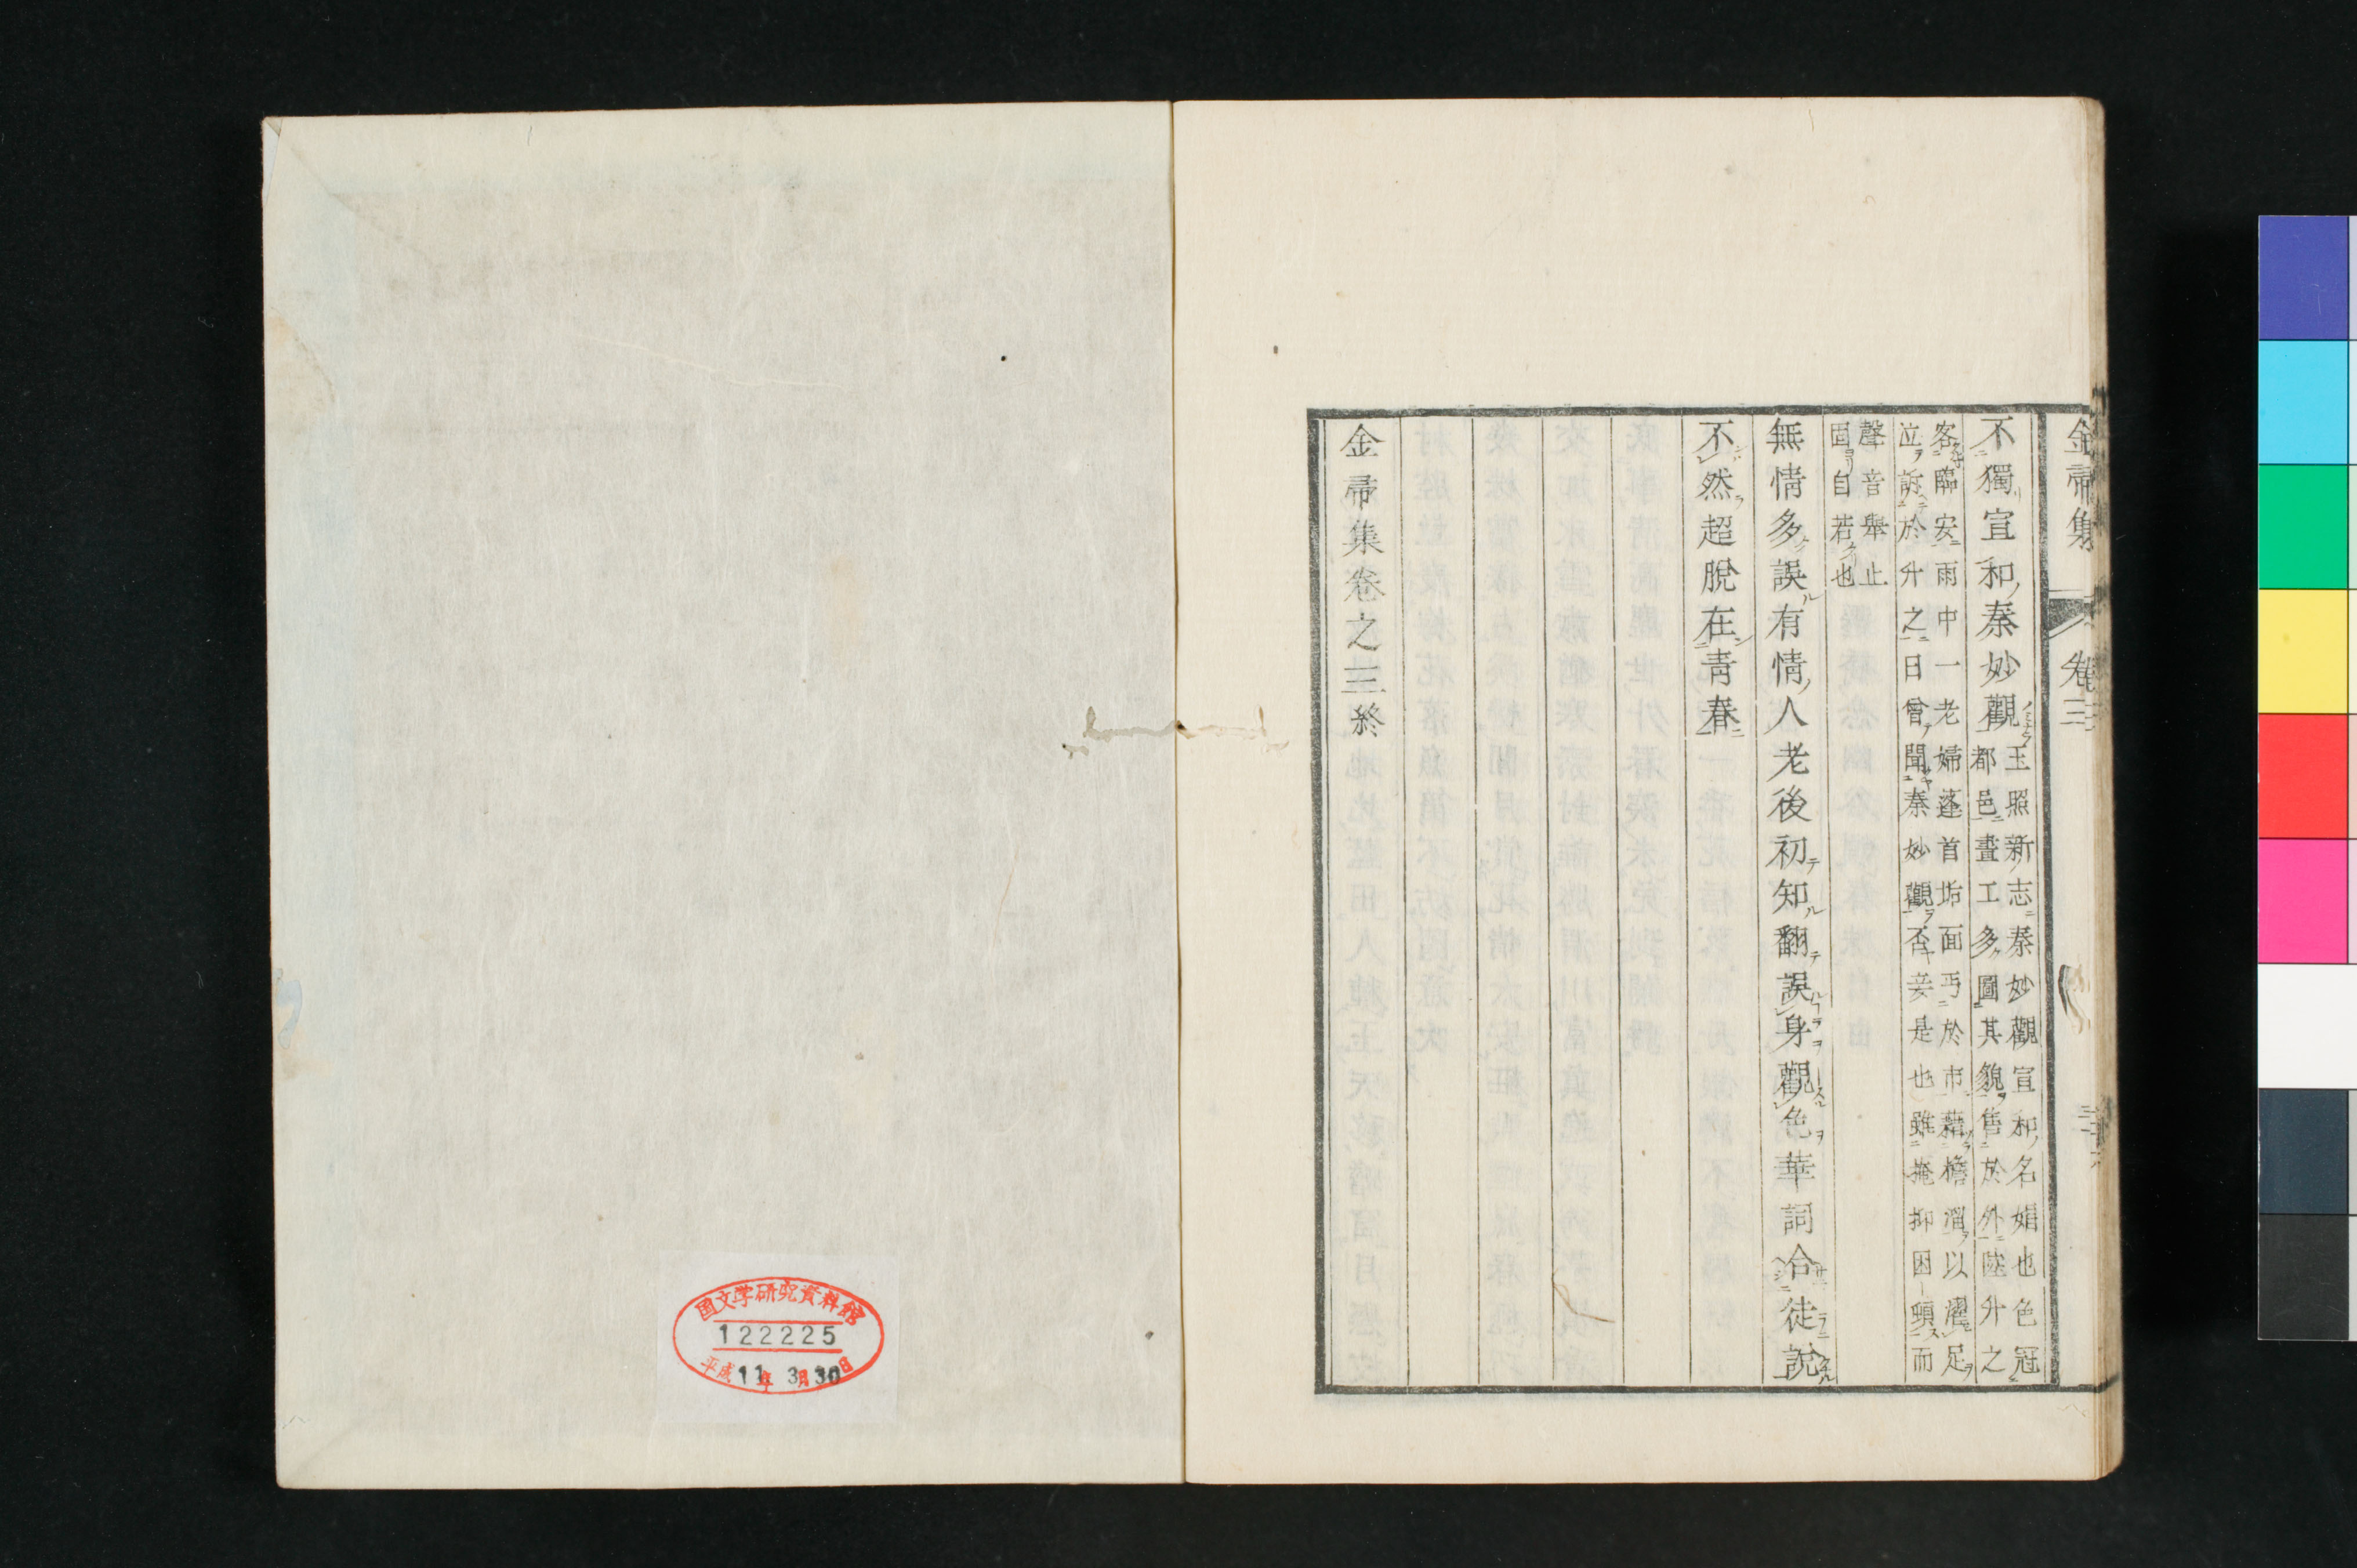 金帚集 卷三
不獨宣和秦妙觀
玉照新志秦妙觀宣和名娼也色冠
都邑畫工多圖其貌售於外陸升之
客臨安雨中一老婦蓬首垢面丐於市藉檐溜以濯足
泣訴於升之曰曾聞秦妙觀否妾是也雖掩抑困頓而
聲音舉止
固自若也
無情多誤有情人老後初知翻誤身觀色華詞合徒說
不然超脫在青春
金帚集卷之三終
国文学研究資料館
122225
平成11年3月30日